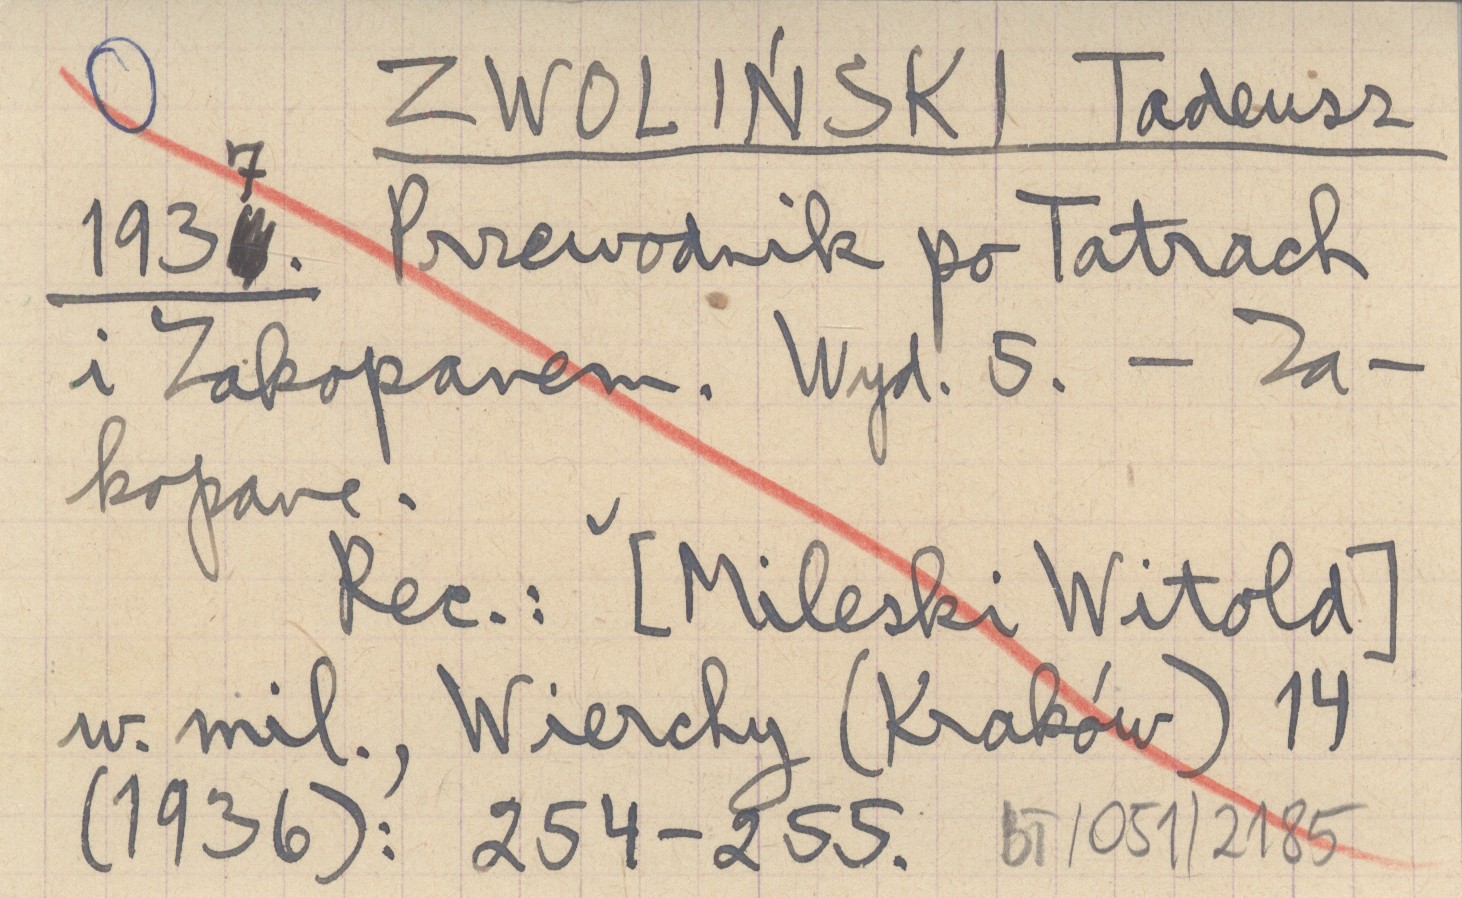 ZWOLIŃSKI Tadeusz
1937. Przewodnik po Tatrach
i Zakopanem. Wyd. 5. – Za-
kopane.
Rec.: [Mileski Witold]
w. mil., Wierchy (Kraków) 14
(1936): 254–255. bT/051/2185